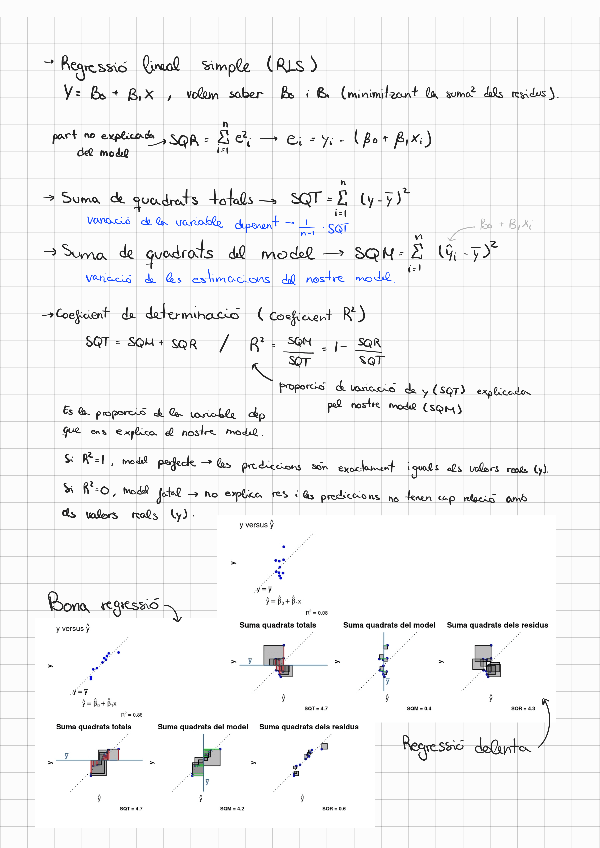 → Regressió lineal simple (RLS)
Y = β₀ + β₁x , volem saber β₀ i β₁ (minimitzant la suma² dels residus).
part no explicada del model → SQR = Σⁿᵢ₌₁ e²ᵢ → eᵢ = yᵢ - (β₀ + β₁xᵢ)
→ Suma de quadrats totals → SQT = Σⁿᵢ₌₁ (y - ȳ)²
variació de la variable dependent → 1/n-1 · SQT
β₀ + β₁xᵢ
→ Suma de quadrats del model → SQM = Σⁿᵢ₌₁ (ŷᵢ - ȳ)²
variació de les estimacions del nostre model.
→ Coeficient de determinació (coeficient R²)
SQT = SQM + SQR / R² = SQM/SQT = 1 - SQR/SQT
proporció de variació de y (SQT) explicada
pel nostre model (SQM)
Es la proporció de la variable dep
que ens explica el nostre model.
Si R²=1, model perfecte → les prediccions són exactament iguals als valors reals (y).
Si R²=0, model fatal → no explica res i les prediccions no tenen cap relació amb
els valors reals (y).
y versus ŷ
y
y = ȳ
ŷ = β̂₀ + β̂₁x
R² = 0.08
Suma quadrats totals Suma quadrats del model Suma quadrats dels residus
y y y
ȳ
ŷ ŷ ŷ
SQT = 4.7 SQM = 0.4 SQR = 4.3
Bona regressió
y versus ŷ
y
y = ȳ
ŷ = β̂₀ + β̂₁x
R² = 0.88
Suma quadrats totals Suma quadrats del model Suma quadrats dels residus
y y y
ȳ ȳ
ŷ ŷ ŷ
SQT = 4.7 SQM = 4.2 SQR = 0.6
Regressió dolenta